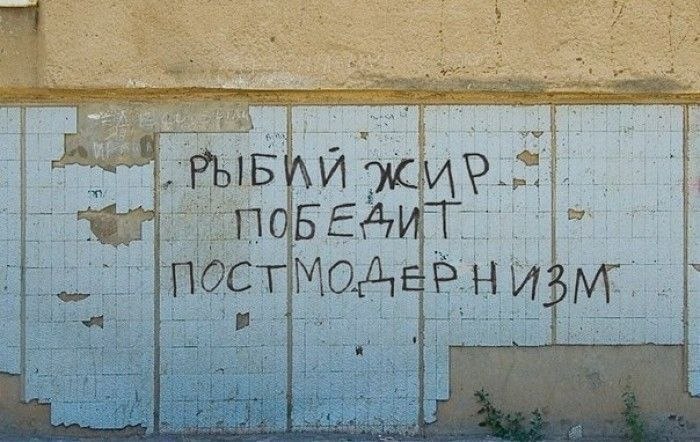 РЫБИЙ ЖИР
ПОБЕДИТ
ПОСТМОДЕРНИЗМ